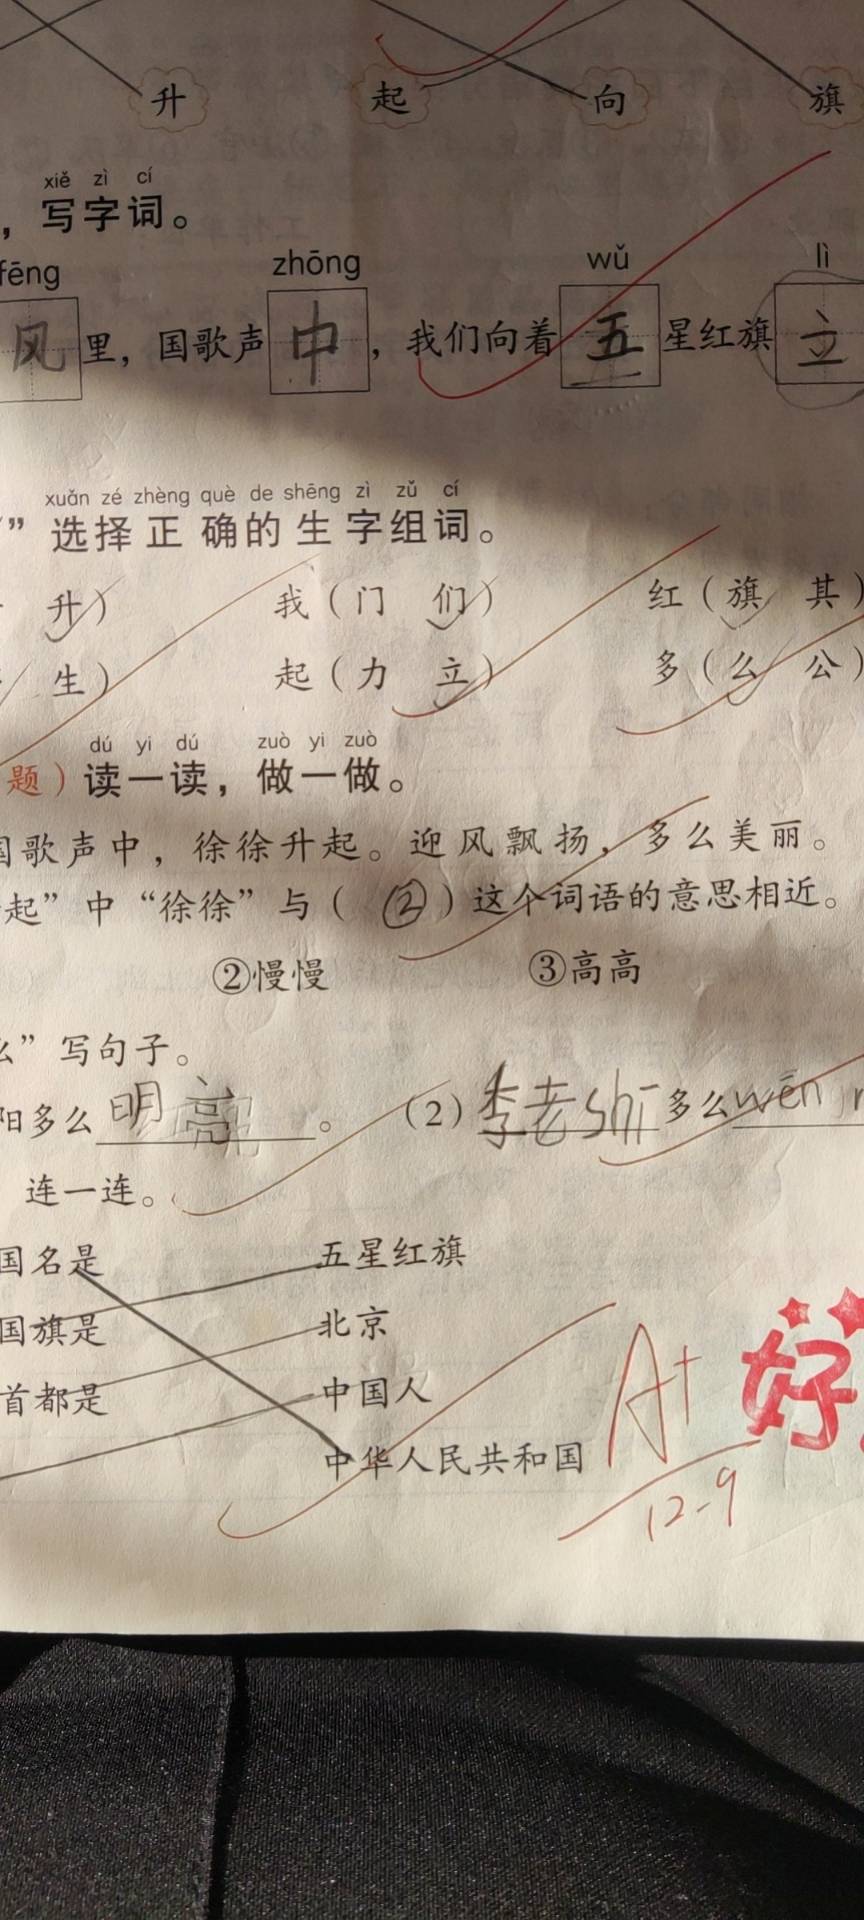 升 起 向 旗
xiě zì cí
，写字词。
fēng zhōng wǔ lì
风里，国歌声中，我们向着五星红旗立
xuǎn zé zhèng què de shēng zì zǔ cí
”选择正确的生字组词。
升） 我（门 们） 红（旗 其）
生） 起（力 立） 多（么 公）
dú yi dú zuò yi zuò
题）读一读，做一做。
国歌声中，徐徐升起。迎风飘扬，多么美丽。
起”中“徐徐”与（②）这个词语的意思相近。
②慢慢 ③高高
么”写句子。
阳多么明亮。 （2）李老shī多么wēn
连一连。
国名是 五星红旗
国旗是 北京
首都是 中国人
中华人民共和国
A+
12-9
好